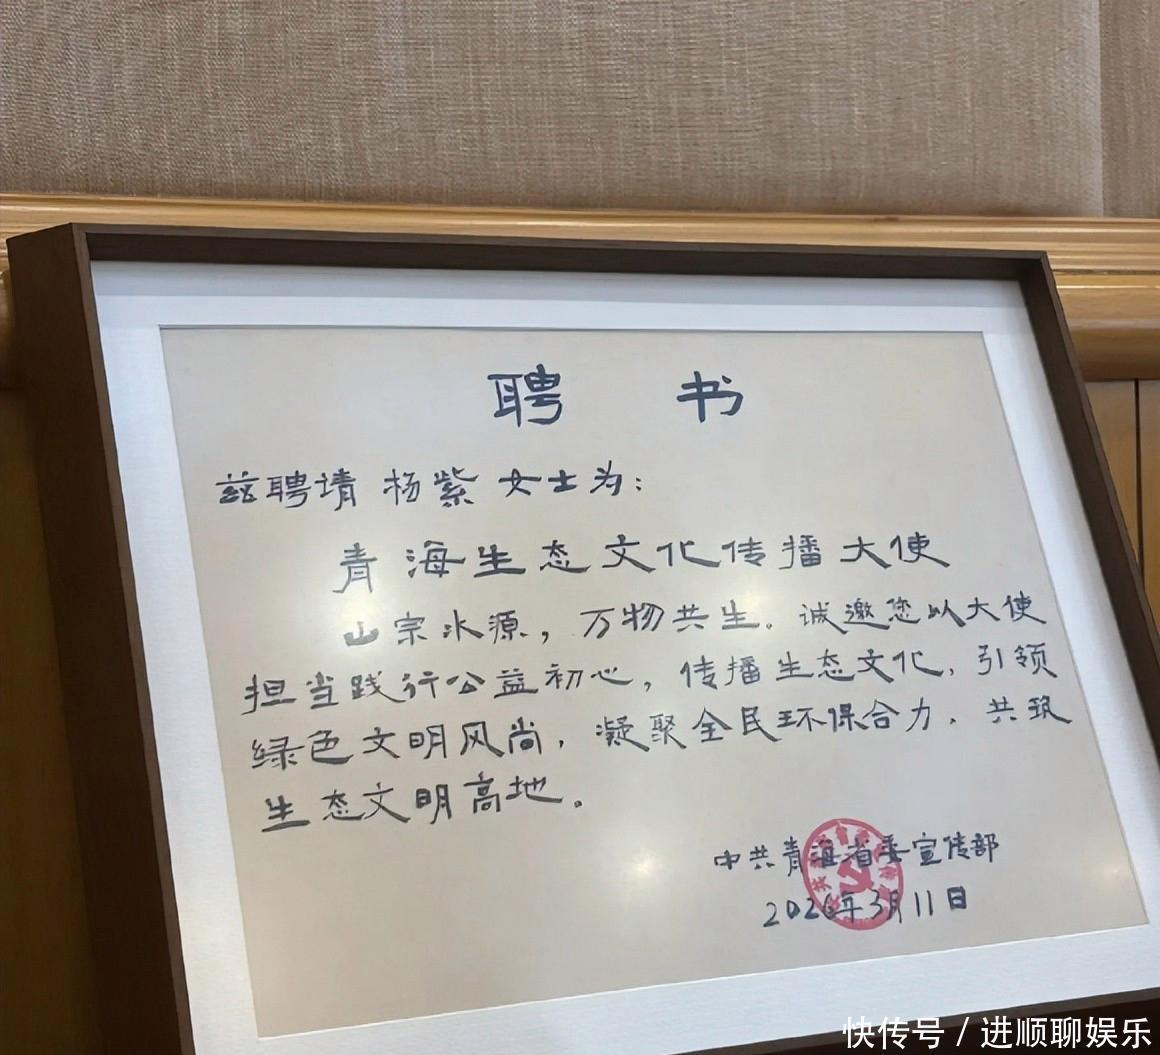 聘 书
兹聘请 杨紫 女士为：
青海生态文化传播大使
山宗水源，万物共生。诚邀您以大使
担当践行公益初心，传播生态文化，引领
绿色文明风尚，凝聚全民环保合力，共筑
生态文明高地。
中共青海省委宣传部
2026年3月11日
快传号 / 进顺聊娱乐